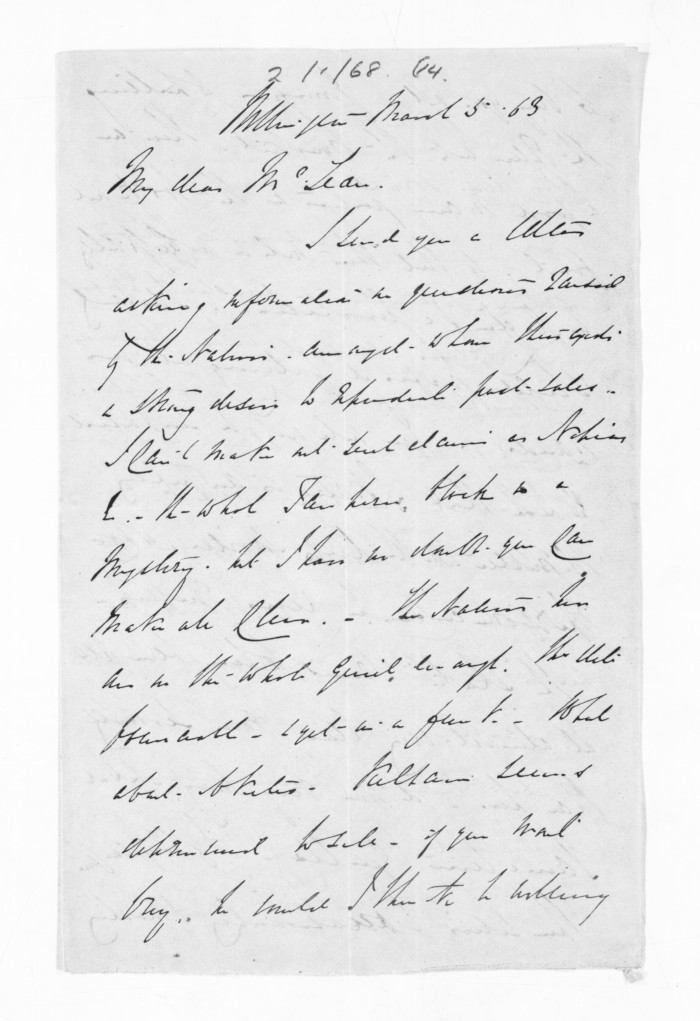 2/1/68. 64.
Wellington March 5. 63
My dear McLean.
I send you a letter
asking information on questions raised
by the Natives - amongst whom there exists
a strong desire to repudiate past sales -
I can't make out such claims as Natives
the whole block is a
mystery. but I have no doubt you can
make all clear. - The Natives here
are on the whole quiet enough. The
- I get in a - What
about - seems
determined to sell - if you want
buy. he would I think be willing